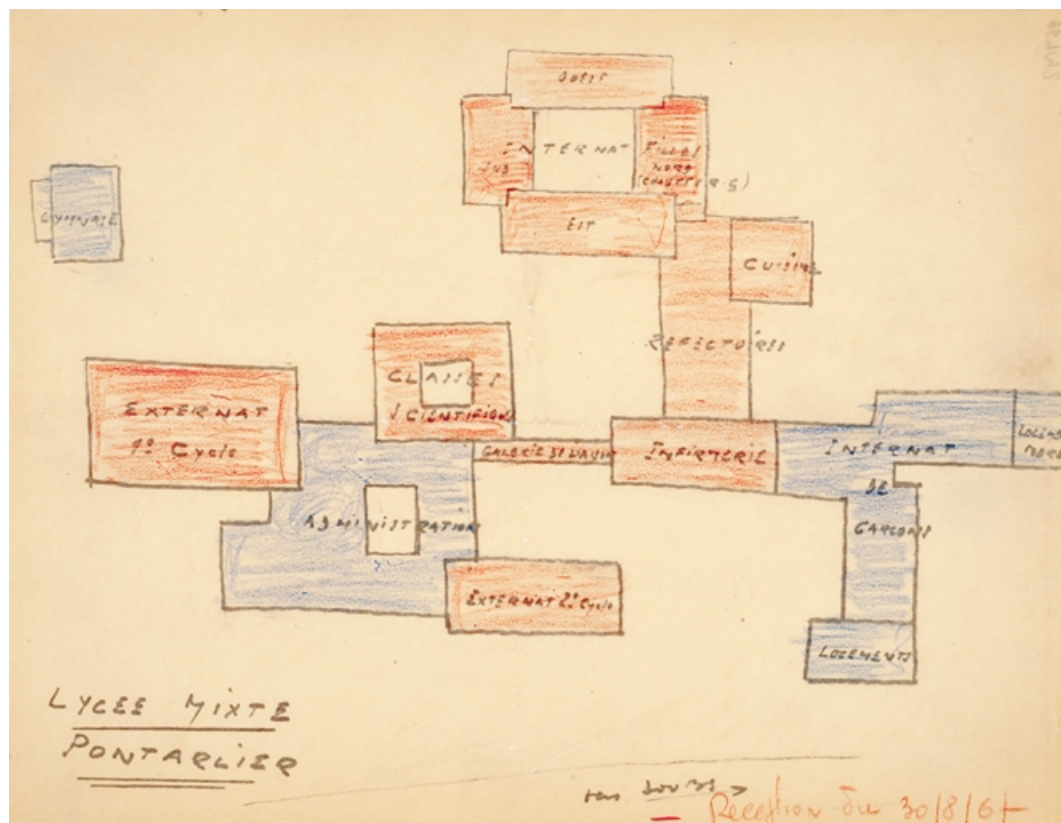 OUEST
INTERNAT
SUD
FILLES
NORD
EST
GYMNASE
CUISINE
REFECTOIRES
CLASSES
SCIENTIFIQUES
EXTERNAT
1º Cycle
GALERIE DE LIAISON
INFIRMERIE
INTERNAT
DE
GARCONS
ADMINISTRATION
EXTERNAT 2º Cycle
LOGEMENTS
LYCEE MIXTE
PONTARLIER
Reception du 30/8/67